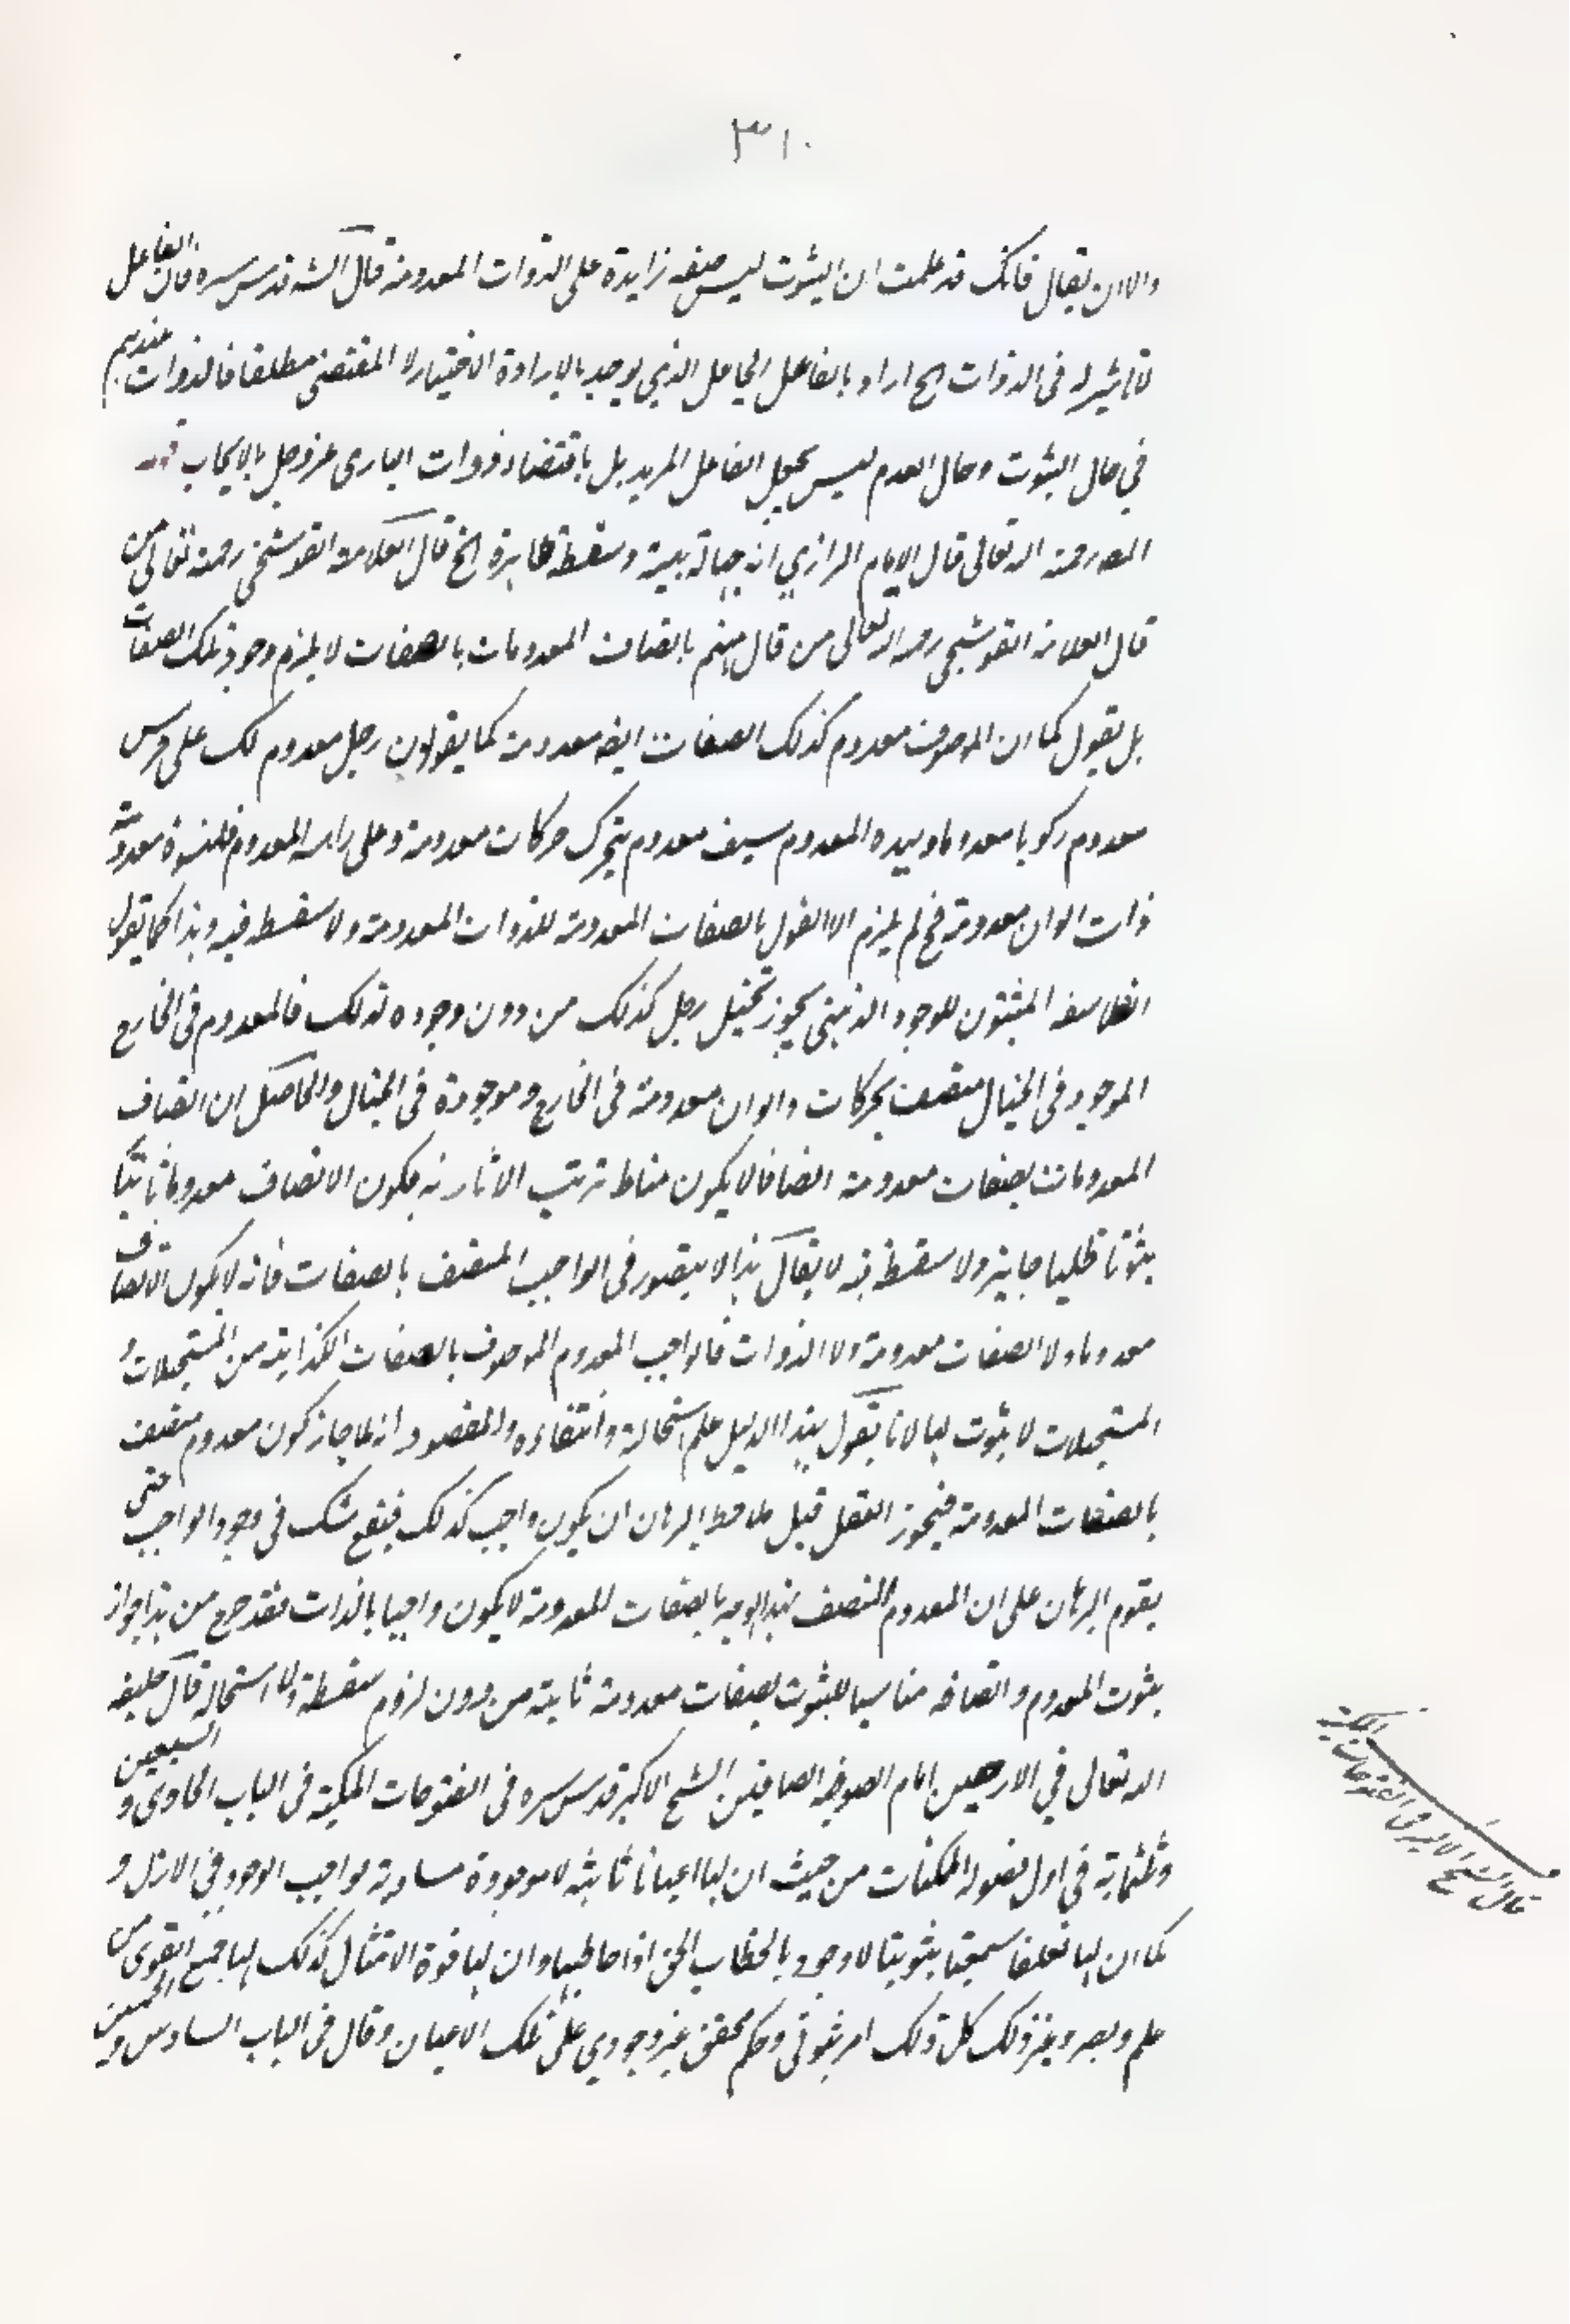 ٣١٠
والا ان يقال فانك قد علمت ان الثبوت ليس صفه زايدة على الذوات المعدومة قال الشه قدس سره فان الفاعل
لا تاثير له فى الذوات الح اراد بالفاعل الجاعل الذي يوجد بالارادة الاختيار لا المقتضى مطلقا فالذوات عندهم
في حال الثبوت وحال العدم ليس بجعل الفاعل المريد بل باقتضاء ذوات البارى عز وجل بالايجاب
المصه رحمة الله تعالى قال الامام الرازي انه جهالة بينة وسفسطة ظاهرة الخ قال العلامة القوشجى رحمه تعالى من
قال العلامة القوشجى رحمه الله تعالى من قال منهم باتصاف المعدومات بالصفات لا يلزم وجود تلك الصفات
بل يقول كما ان الموصوف معدوم كذلك الصفات ايضه معدومة كما يقولون رجل معدوم لك على فرس
معدوم ركوبا معدوما وبيده المعدوم سيف معدوم يتحرك حركات معدومة وعلى راسه المعدوم قلنسوة معدومة
ذات الوان معدومة فح لم يلزم الا القول بالصفات المعدومة للذوات المعدومة ولا سفسطه فيه وهذا كما يقول
الفلاسفه المثبتون للوجود الذهنى يجوز تخيل رجل كذلك من دون وجوده لذلك فالمعدوم فى الخارج
الموجود فى الخيال متصف بحركات والوان معدومة فى الخارج وموجودة فى الخيال والحاصل ان اتصاف
المعدومات بصفات معدومة اتصافا لا يكون مناط ترتب الاثار به فيكون الاتصاف معدوما ثابتا
ثبوتا ظليا جايز ولا سفسطة فيه لا يقال هذا لا يتصور فى الواجب المتصف بالصفات فانه لا يكون الاتصاف
معدوما ولا الصفات معدومة ولا الذوات فالواجب المعدوم الموصوف بالصفات الكذايية من المستحيلات و
المستحيلات لا ثبوت لها لانا نقول هذا الدليل علم استحالة وانتفاءه والمقصود انه لما جاز كون معدوم متصف
بالصفات المعدومة فيجوز العقل قبل ملاحظه البرهان ان يكون واجب كذلك فيقع شك فى وجود الواجب حتى
يقوم البرهان على ان المعدوم المتصف بهذا الوجه بالصفات المعدومة لا يكون واجبا بالذات فقد صرح من هذا جواز
ثبوت المعدوم واتصافه مناسبا للثبوت بصفات معدومة ثابتة من دون لزوم سفسطة ولا استحاله قال خليفه
الله تعالى في الارضين امام الصوفيه الصافيين الشيخ الاكبر قدس سره فى الفتوحات المكية فى الباب الحادى و السبعين
وثلثماية فى اول فصوله الممكنات من حيث ان لها اعيانا ثابتة لا موجودة مساوية لواجب الوجود في الازل و
كما ان لها تعلقا سمعيا ثبوتيا لا وجود بالخطاب الحق اذا خاطبها وان لها قوة الامتثال كذلك لها جميع القوى من
علم وبصر وغير ذلك كل ذلك امر ثبوتى وحكم محقق غير وجودي على تلك الاعيان وقال فى الباب السادس و الخمسين
قال الشيخ الاكبر فى الفتوحات المكية